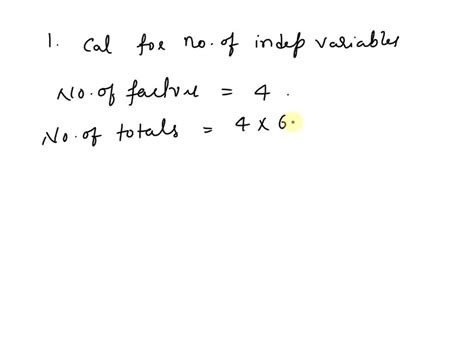 1. Cal for no. of indep variables
No. of facture = 4.
No. of totals = 4 x 6